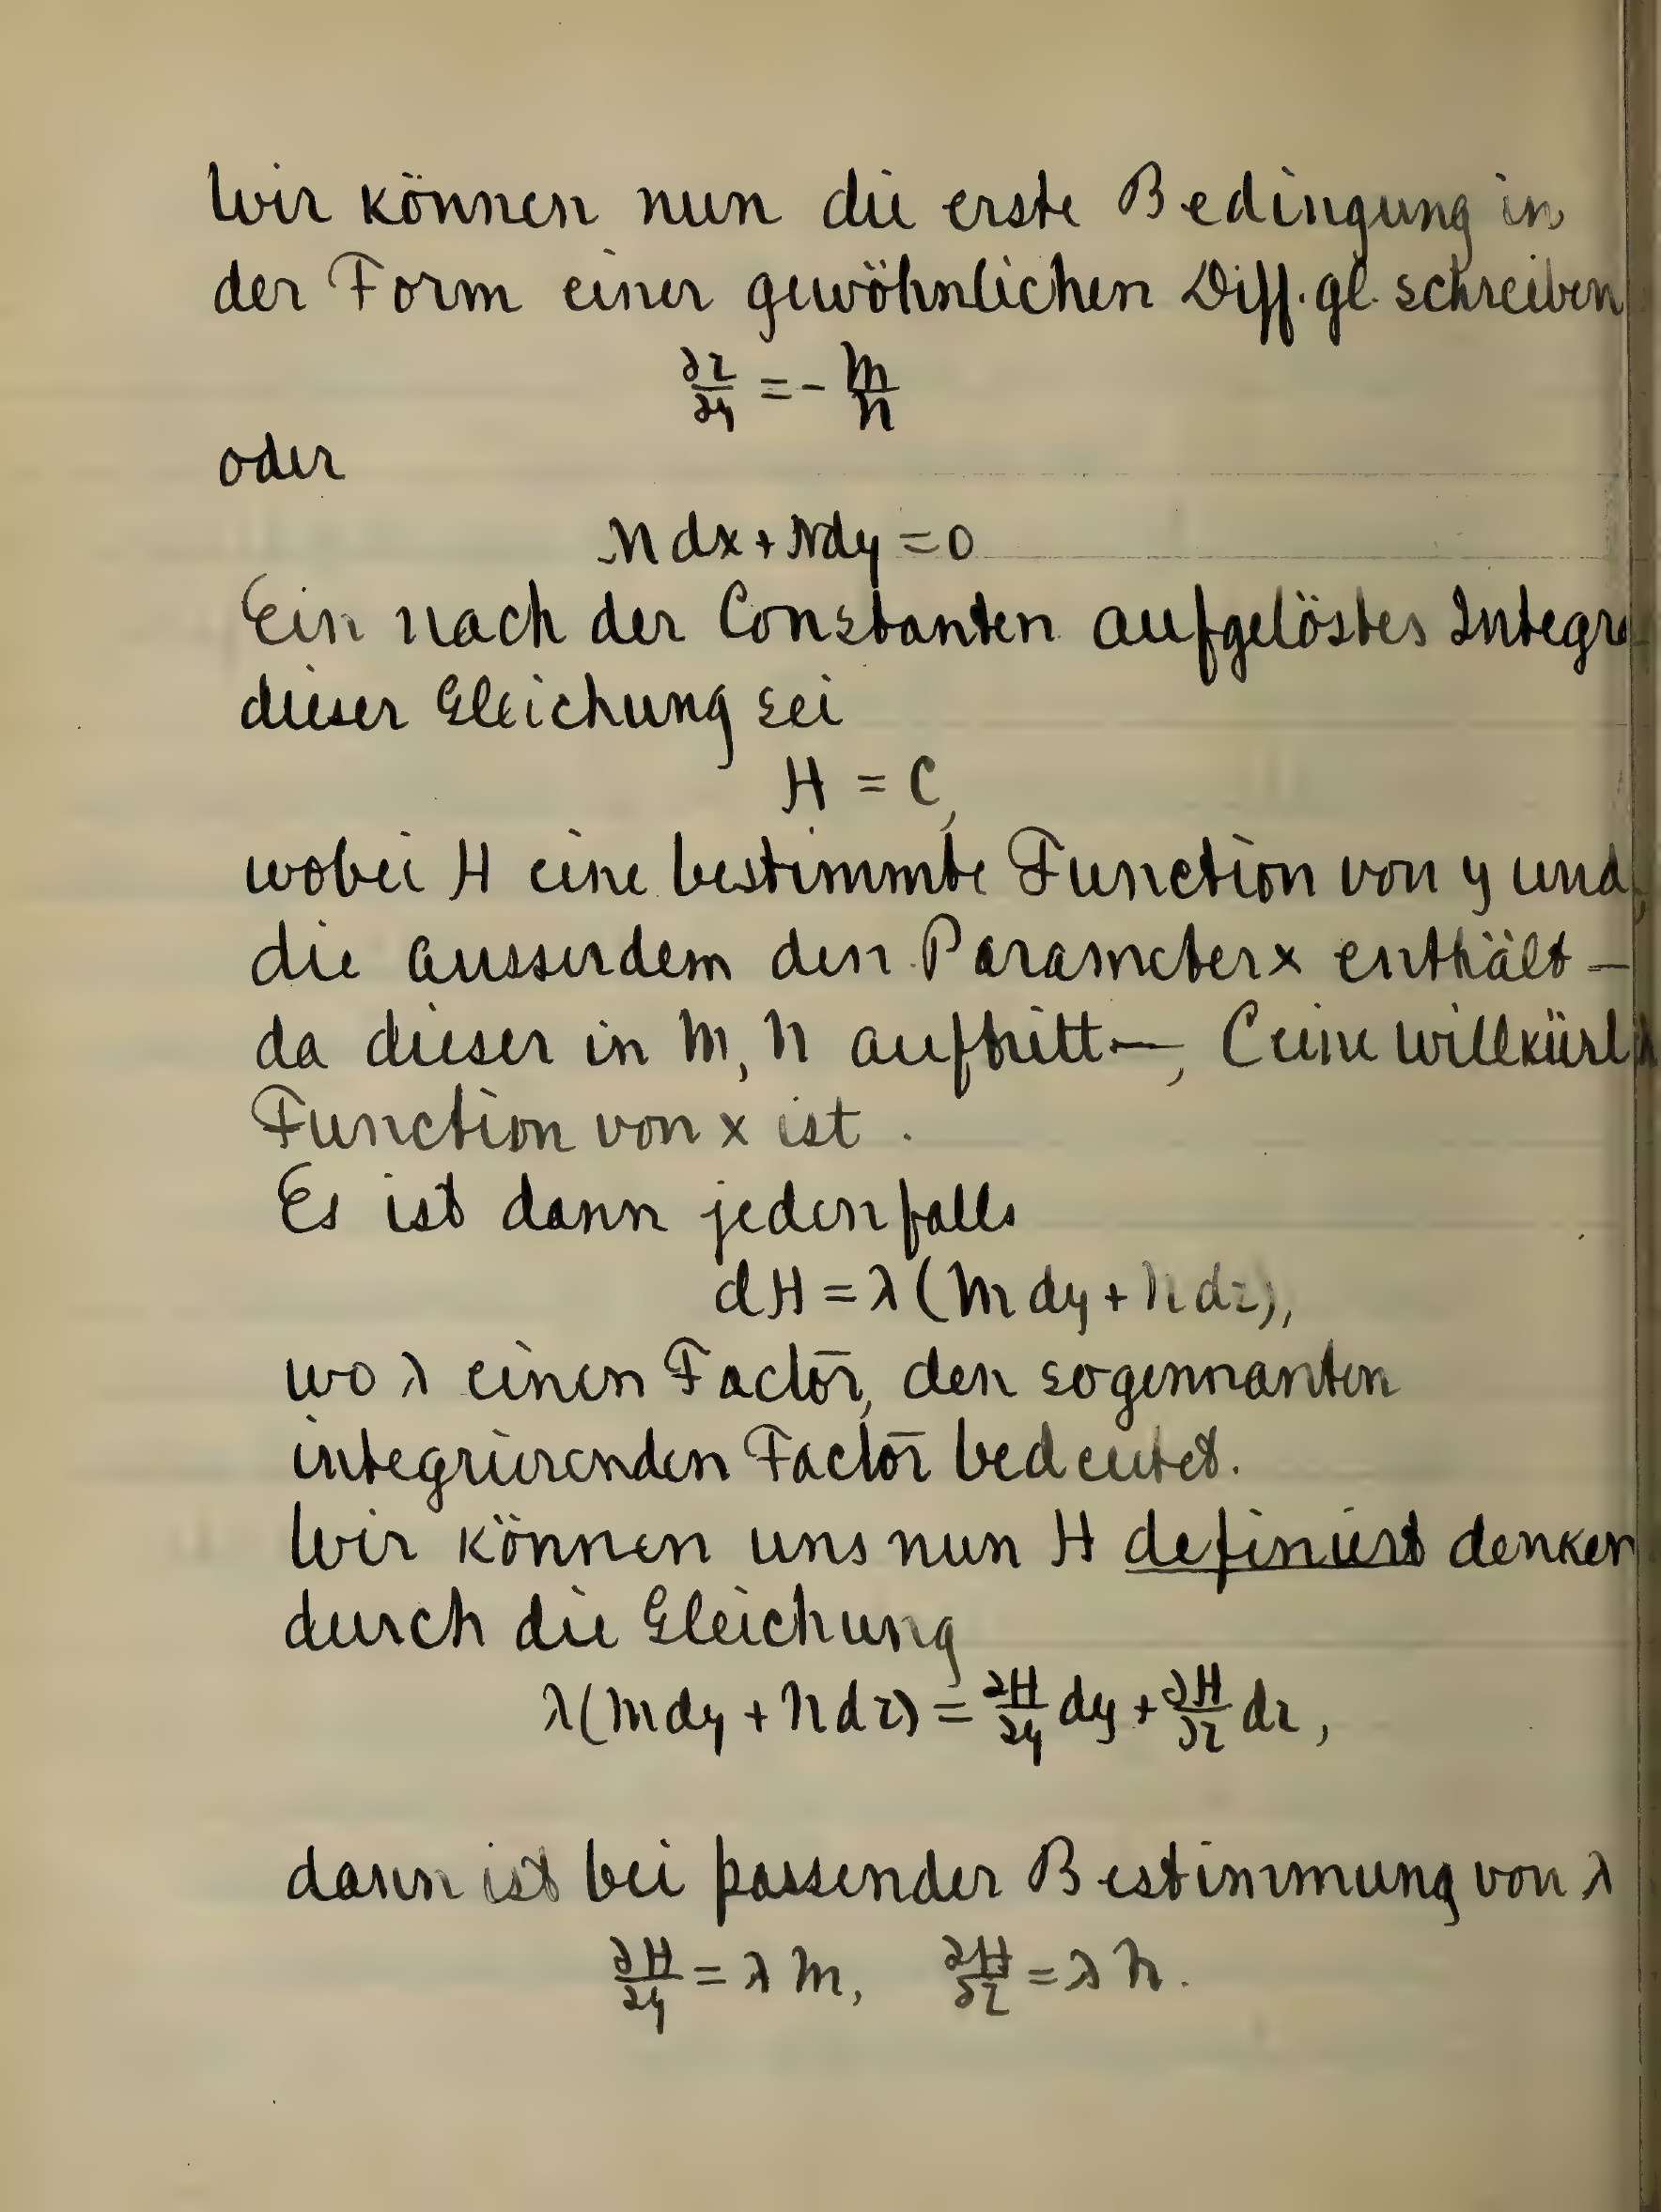 Wir können nun die erste Bedingung in
der Form einer gewöhnlichen Diff.gl. schreiben
∂z/∂y = - M/N
oder
M dx + N dy = 0
Ein nach der Constanten aufgelöstes Integra
dieser Gleichung sei
H = C,
wobei H eine bestimmte Function von y und
die ausserdem den Parameter x enthält —
da dieser in M, N auftritt —, C eine willkürli
Function von x ist.
Es ist dann jedenfalls
dH = λ (M dy + N dz),
wo λ einen Factor, den sogennanten
integrierenden Factor bedeutet.
Wir können uns nun H definiert denken
durch die Gleichung
λ(M dy + N dz) = ∂H/∂y dy + ∂H/∂z dz,
dann ist bei passender Bestimmung von λ
∂H/∂y = λ M, ∂H/∂z = λ N.